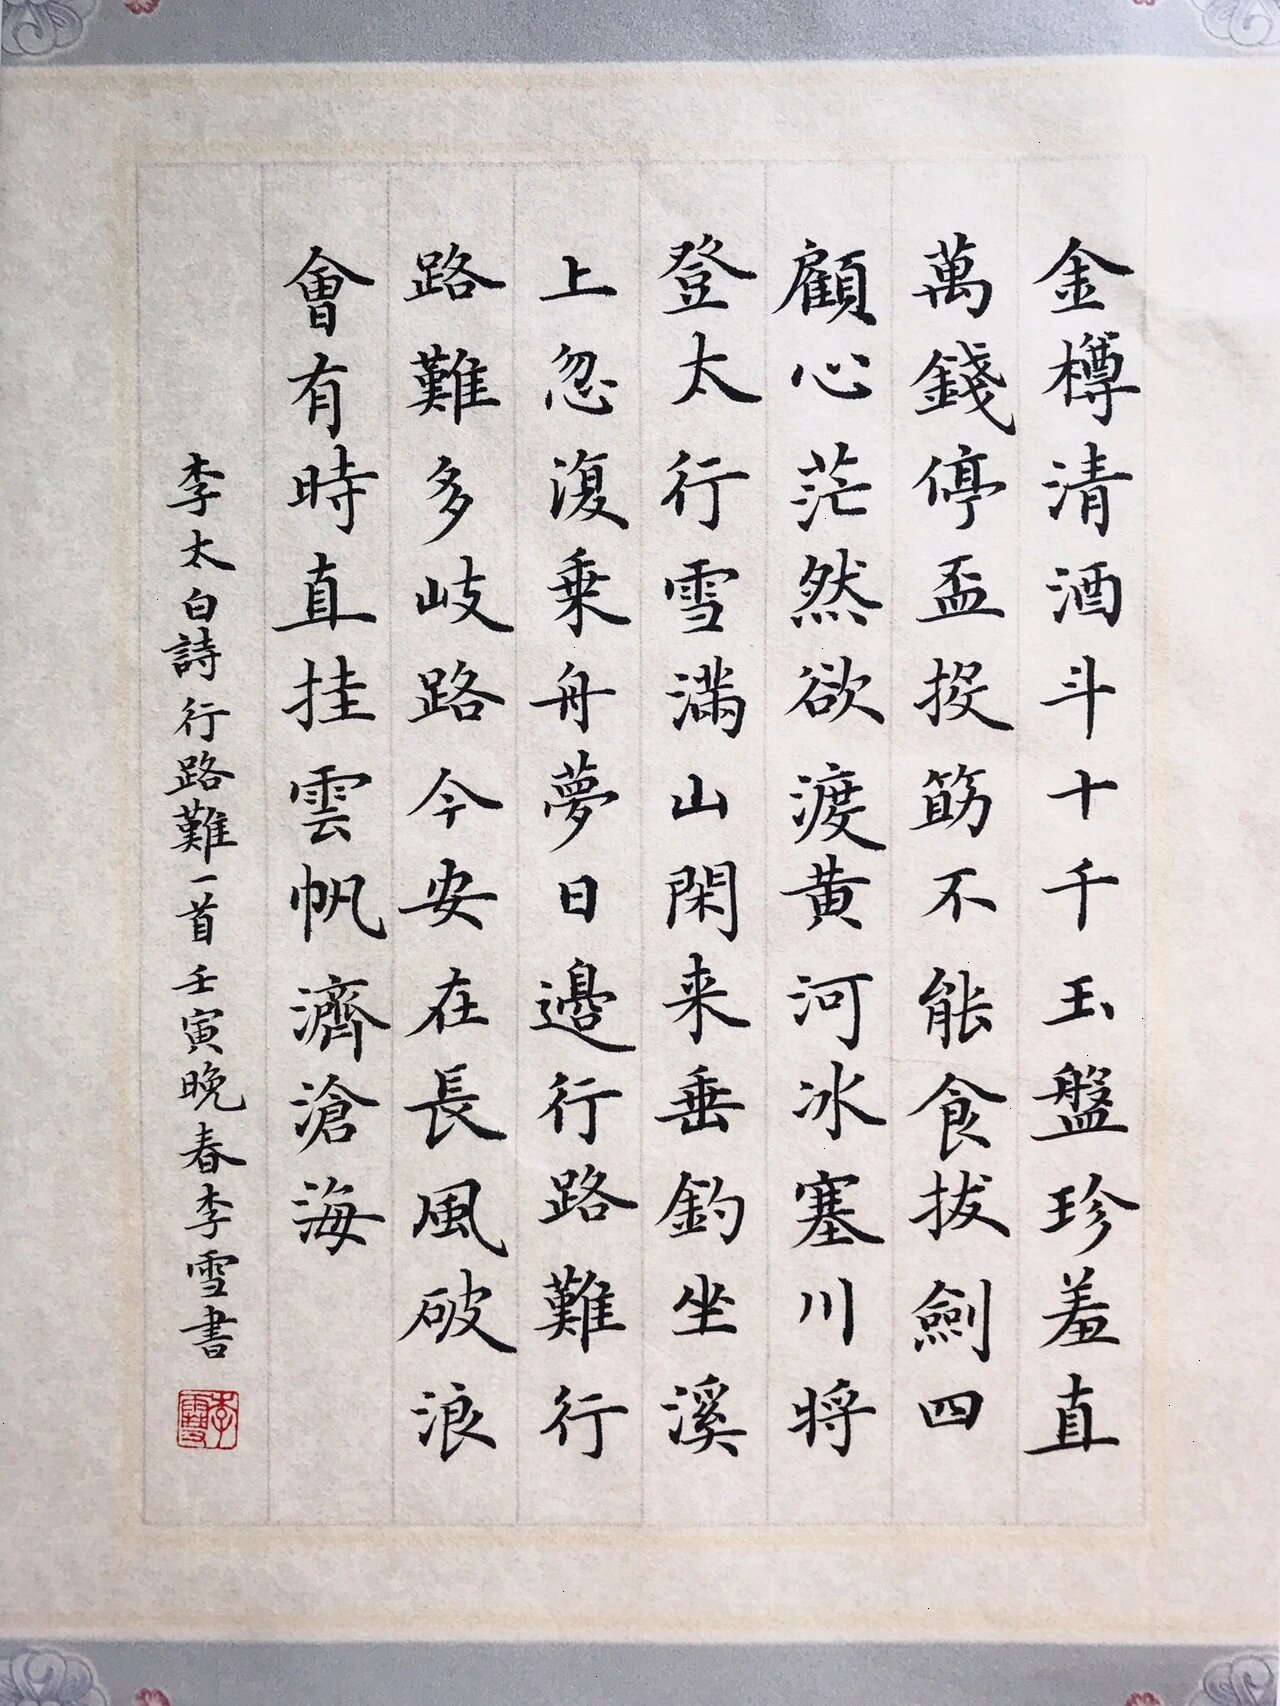 金樽清酒斗十千玉盤珍羞直
萬錢停盃投筯不能食拔劍四
顧心茫然欲渡黄河冰塞川将
登太行雪滿山閑来垂釣坐溪
上忽復乗舟夢日邊行路難行
路難多岐路今安在長風破浪
會有時直挂雲帆濟滄海
李太白詩行路難一首壬寅晚春李雪書
李雪